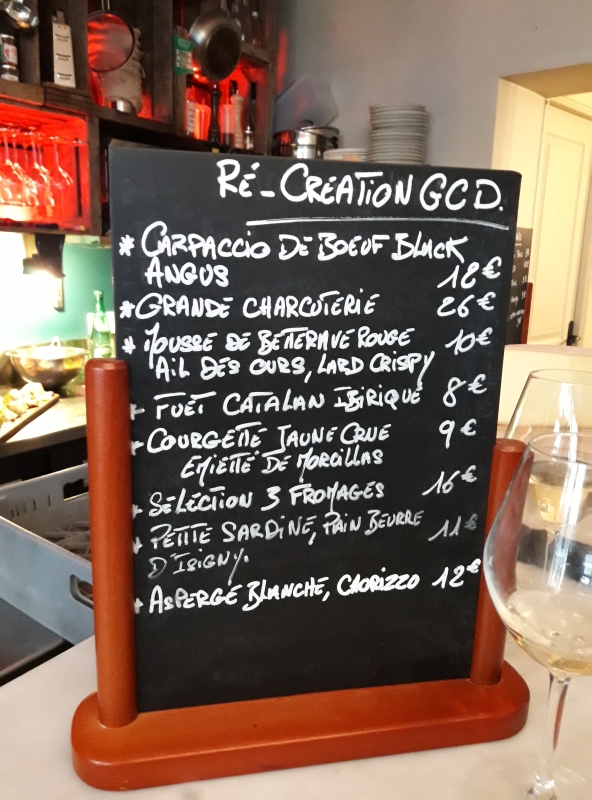 RÉ-CRÉATION GCD.
* CARPACCIO DE BOEUF BLACK
ANGUS 18€
* GRANDE CHARCUTERIE 26€
* MOUSSE DE BETTERAVE ROUGE 10€
AIL DES OURS, LARD CRISPY
* FUET CATALAN IBIRIQUE 8€
* COURGETTE JAUNE CRUE 9€
EMIETTÉ DE MORCILLAS
* SÉLECTION 3 FROMAGES 16€
* PETITE SARDINE, PAIN BEURRE 11€
D'ISIGNY.
* ASPERGE BLANCHE, CHORIZZO 12€